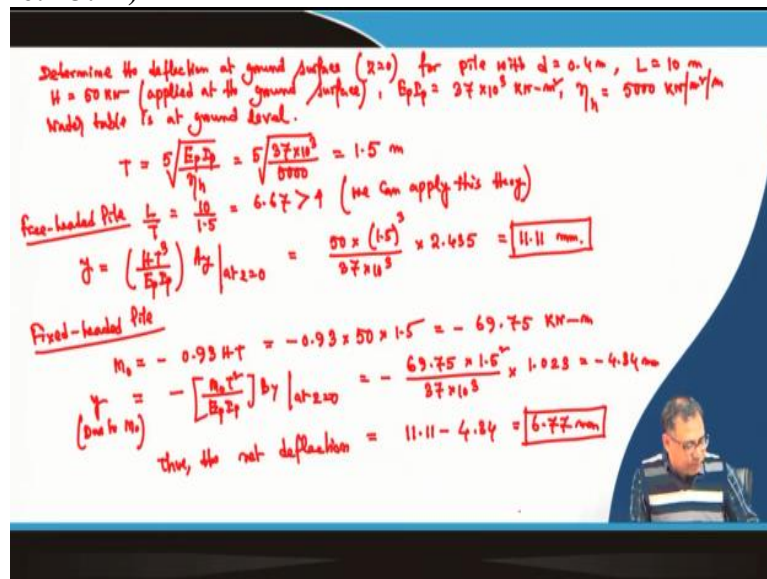 Determine the deflection at ground surface (z=0) for pile with d = 0.4 m, L = 10 m
H = 50 KN (applied at the ground surface), EpIp = 37 x10³ KN-m², ηh = 5000 KN/m²/m
Water table is at ground level.
T = ⁵√(EpIp/ηh) = ⁵√(37x10³/5000) = 1.5 m
Free-headed Pile L/T = 10/1.5 = 6.67 > 4 (we can apply this theory)
y = (HT³/EpIp) Ay |at z=0 = 50 x (1.5)³/37x10³ x 2.435 = 11.11 mm.
Fixed-headed Pile
M₀ = - 0.93 HT = -0.93 x 50 x 1.5 = - 69.75 KN-m
y = - [M₀T²/EpIp] By |at z=0 = - 69.75 x 1.5²/37x10³ x 1.023 = -4.34 mm
(Due to M₀)
Thus, the net deflection = 11.11 - 4.34 = 6.77 mm